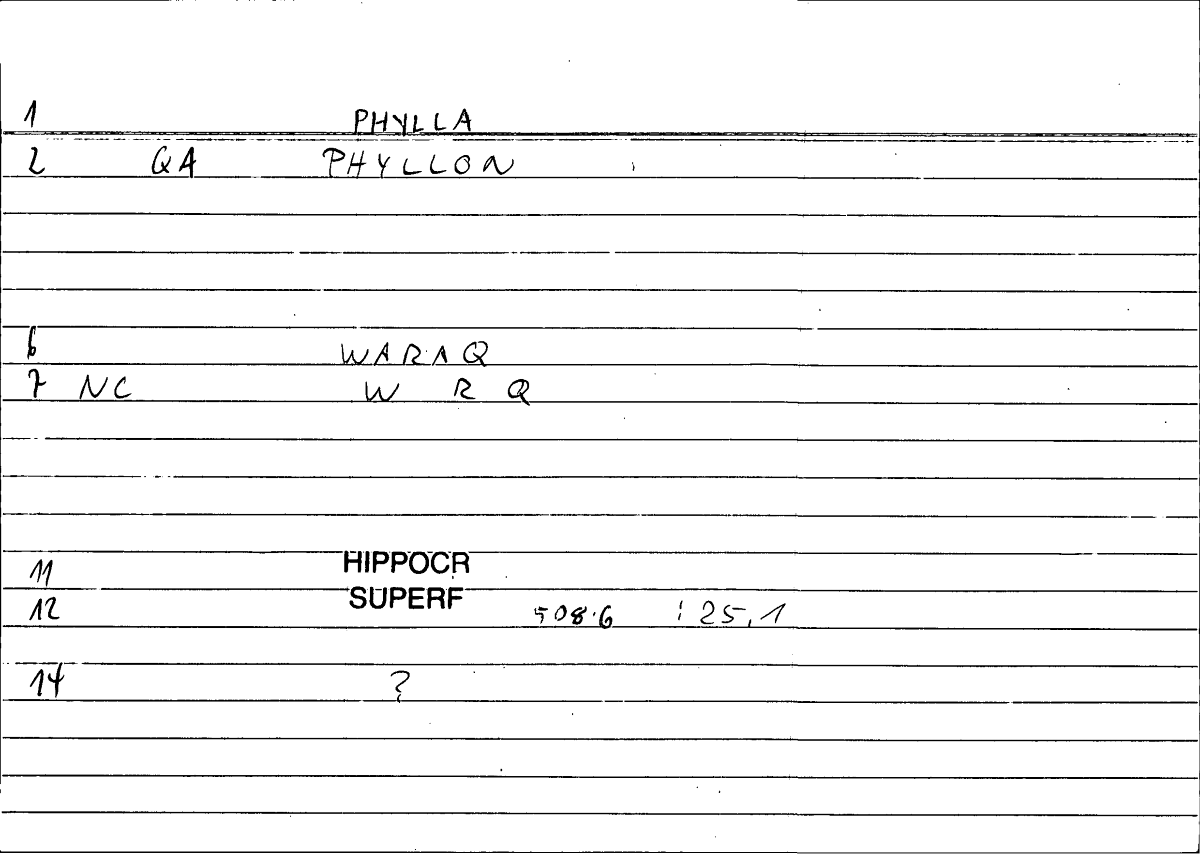 1 PHYLLA
2 QA PHYLLON
6 WARAQ
7 NC W R Q
11 HIPPOCR
12 SUPERF 508.6 : 25,1
14 ?